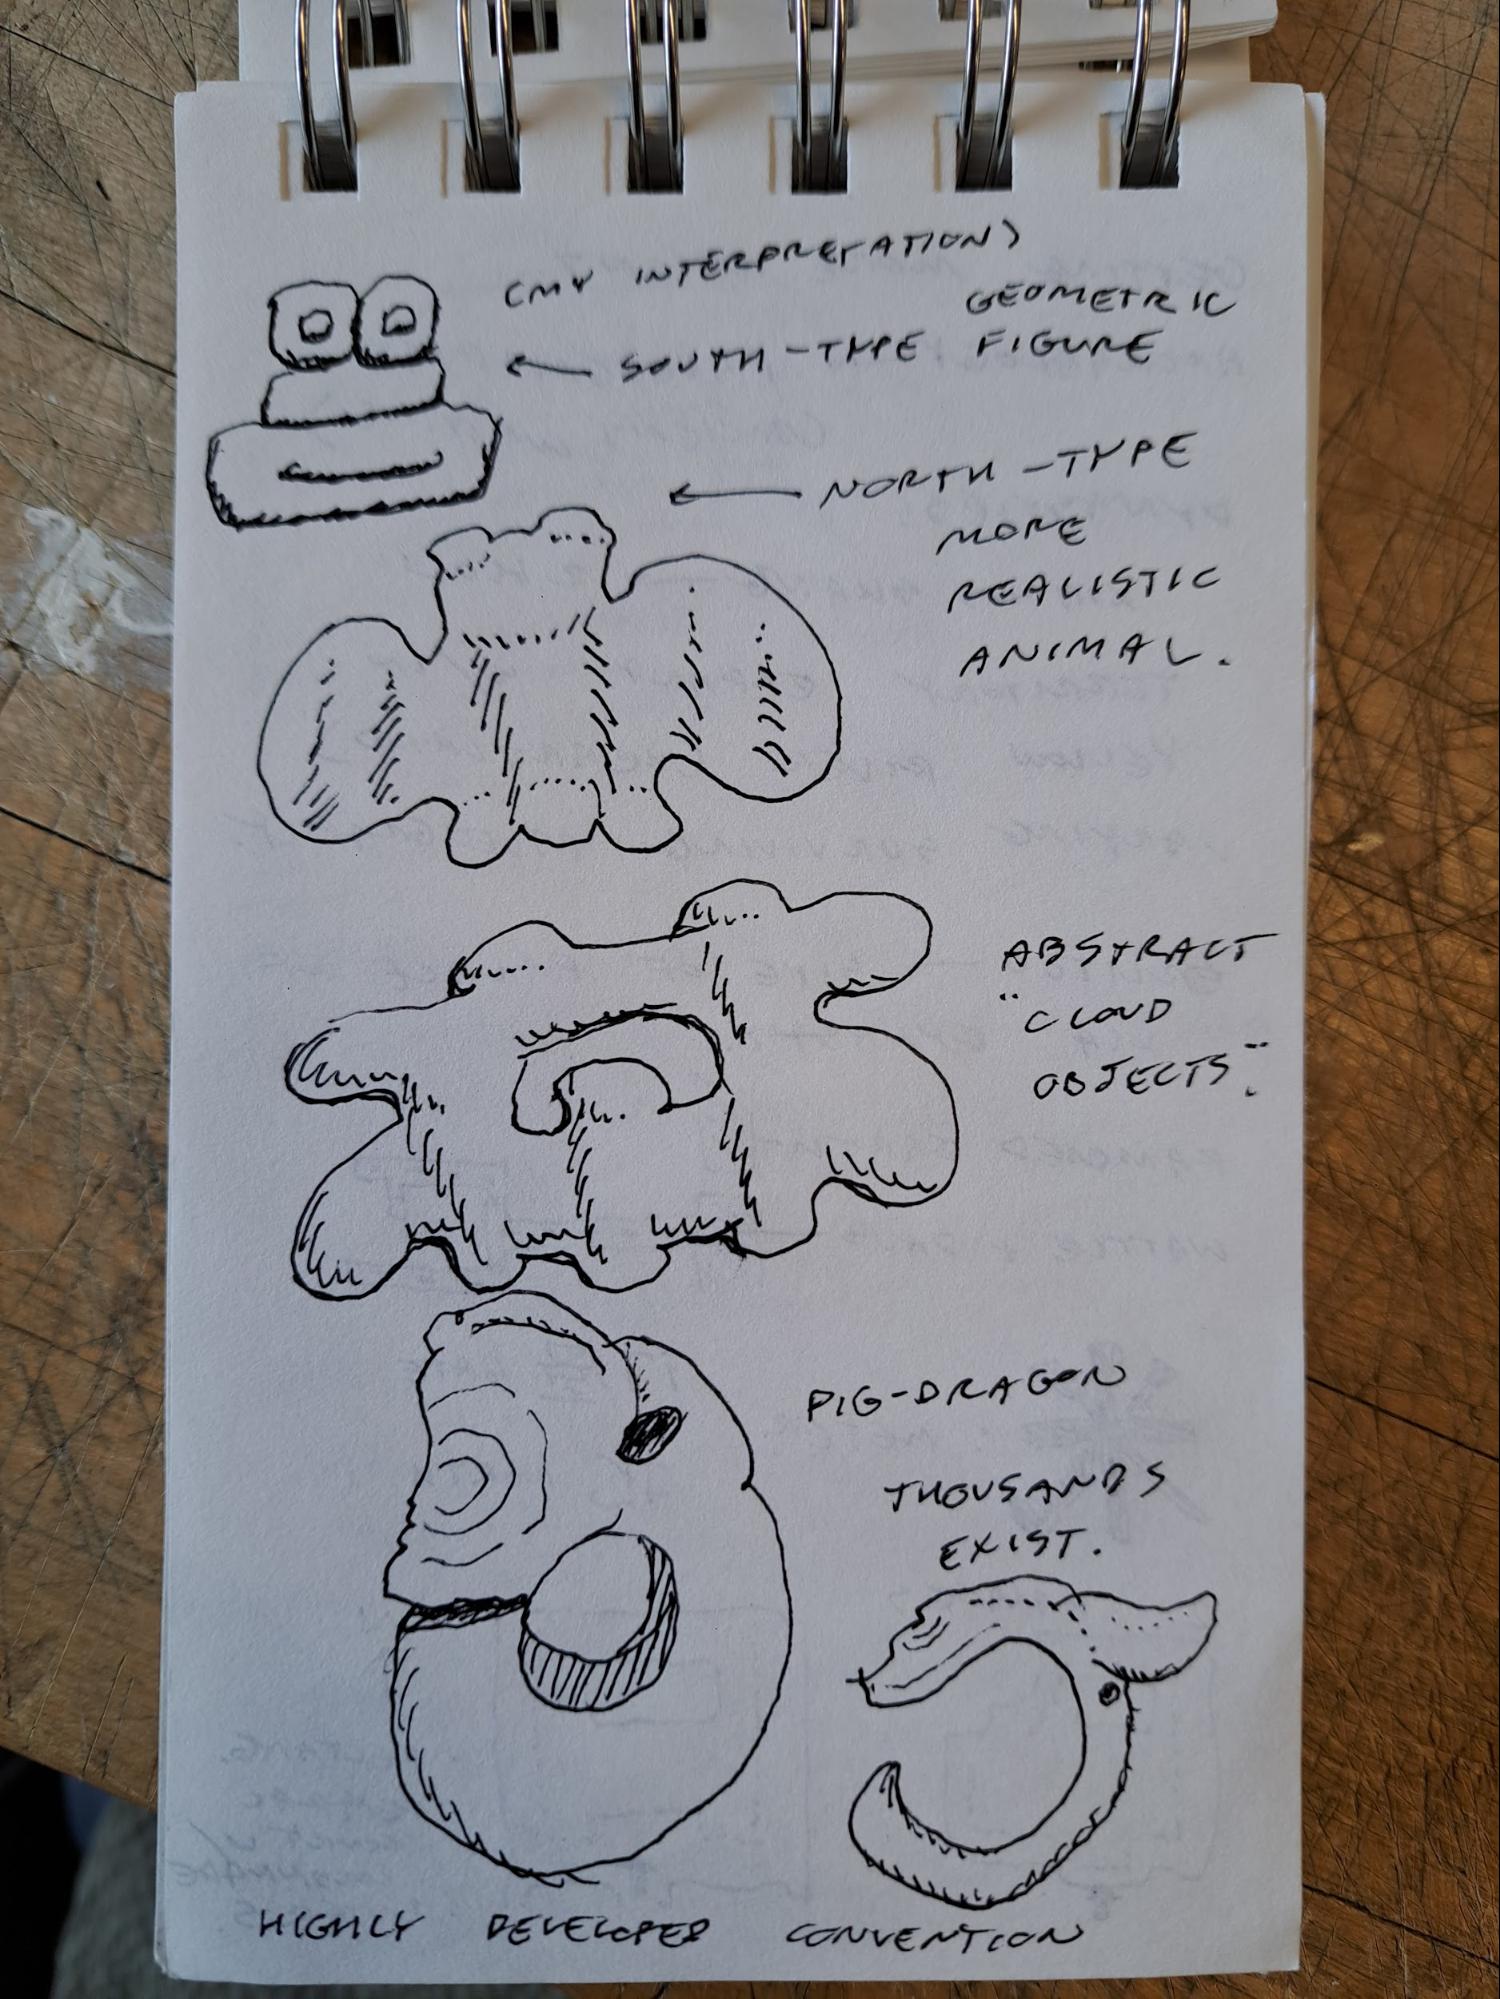 (MY INTERPRETATION)
GEOMETRIC
← SOUTH-TYPE FIGURE
← NORTH-TYPE
MORE
REALISTIC
ANIMAL.
ABSTRACT
"CLOUD
OBJECTS".
PIG-DRAGON
THOUSANDS
EXIST.
HIGHLY DEVELOPED CONVENTION